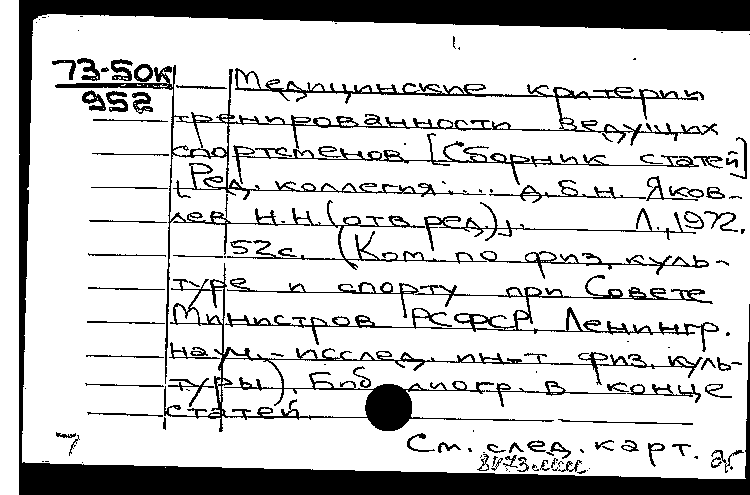 1.
73-50К
952
Медицинские критерии
тренированности ведущих
спортсменов. [Сборник статей]
[Ред. коллегия: ... д.б.н. Яков-
лев Н.Н. (отв. ред.)]. Л., 1972.
52с. (Ком. по физ. куль-
туре и спорту при Совете
Министров РСФСР. Ленингр.
науч.-исслед. ин-т физ. куль-
туры). Библиогр. в конце
статей.
См. след. карт.